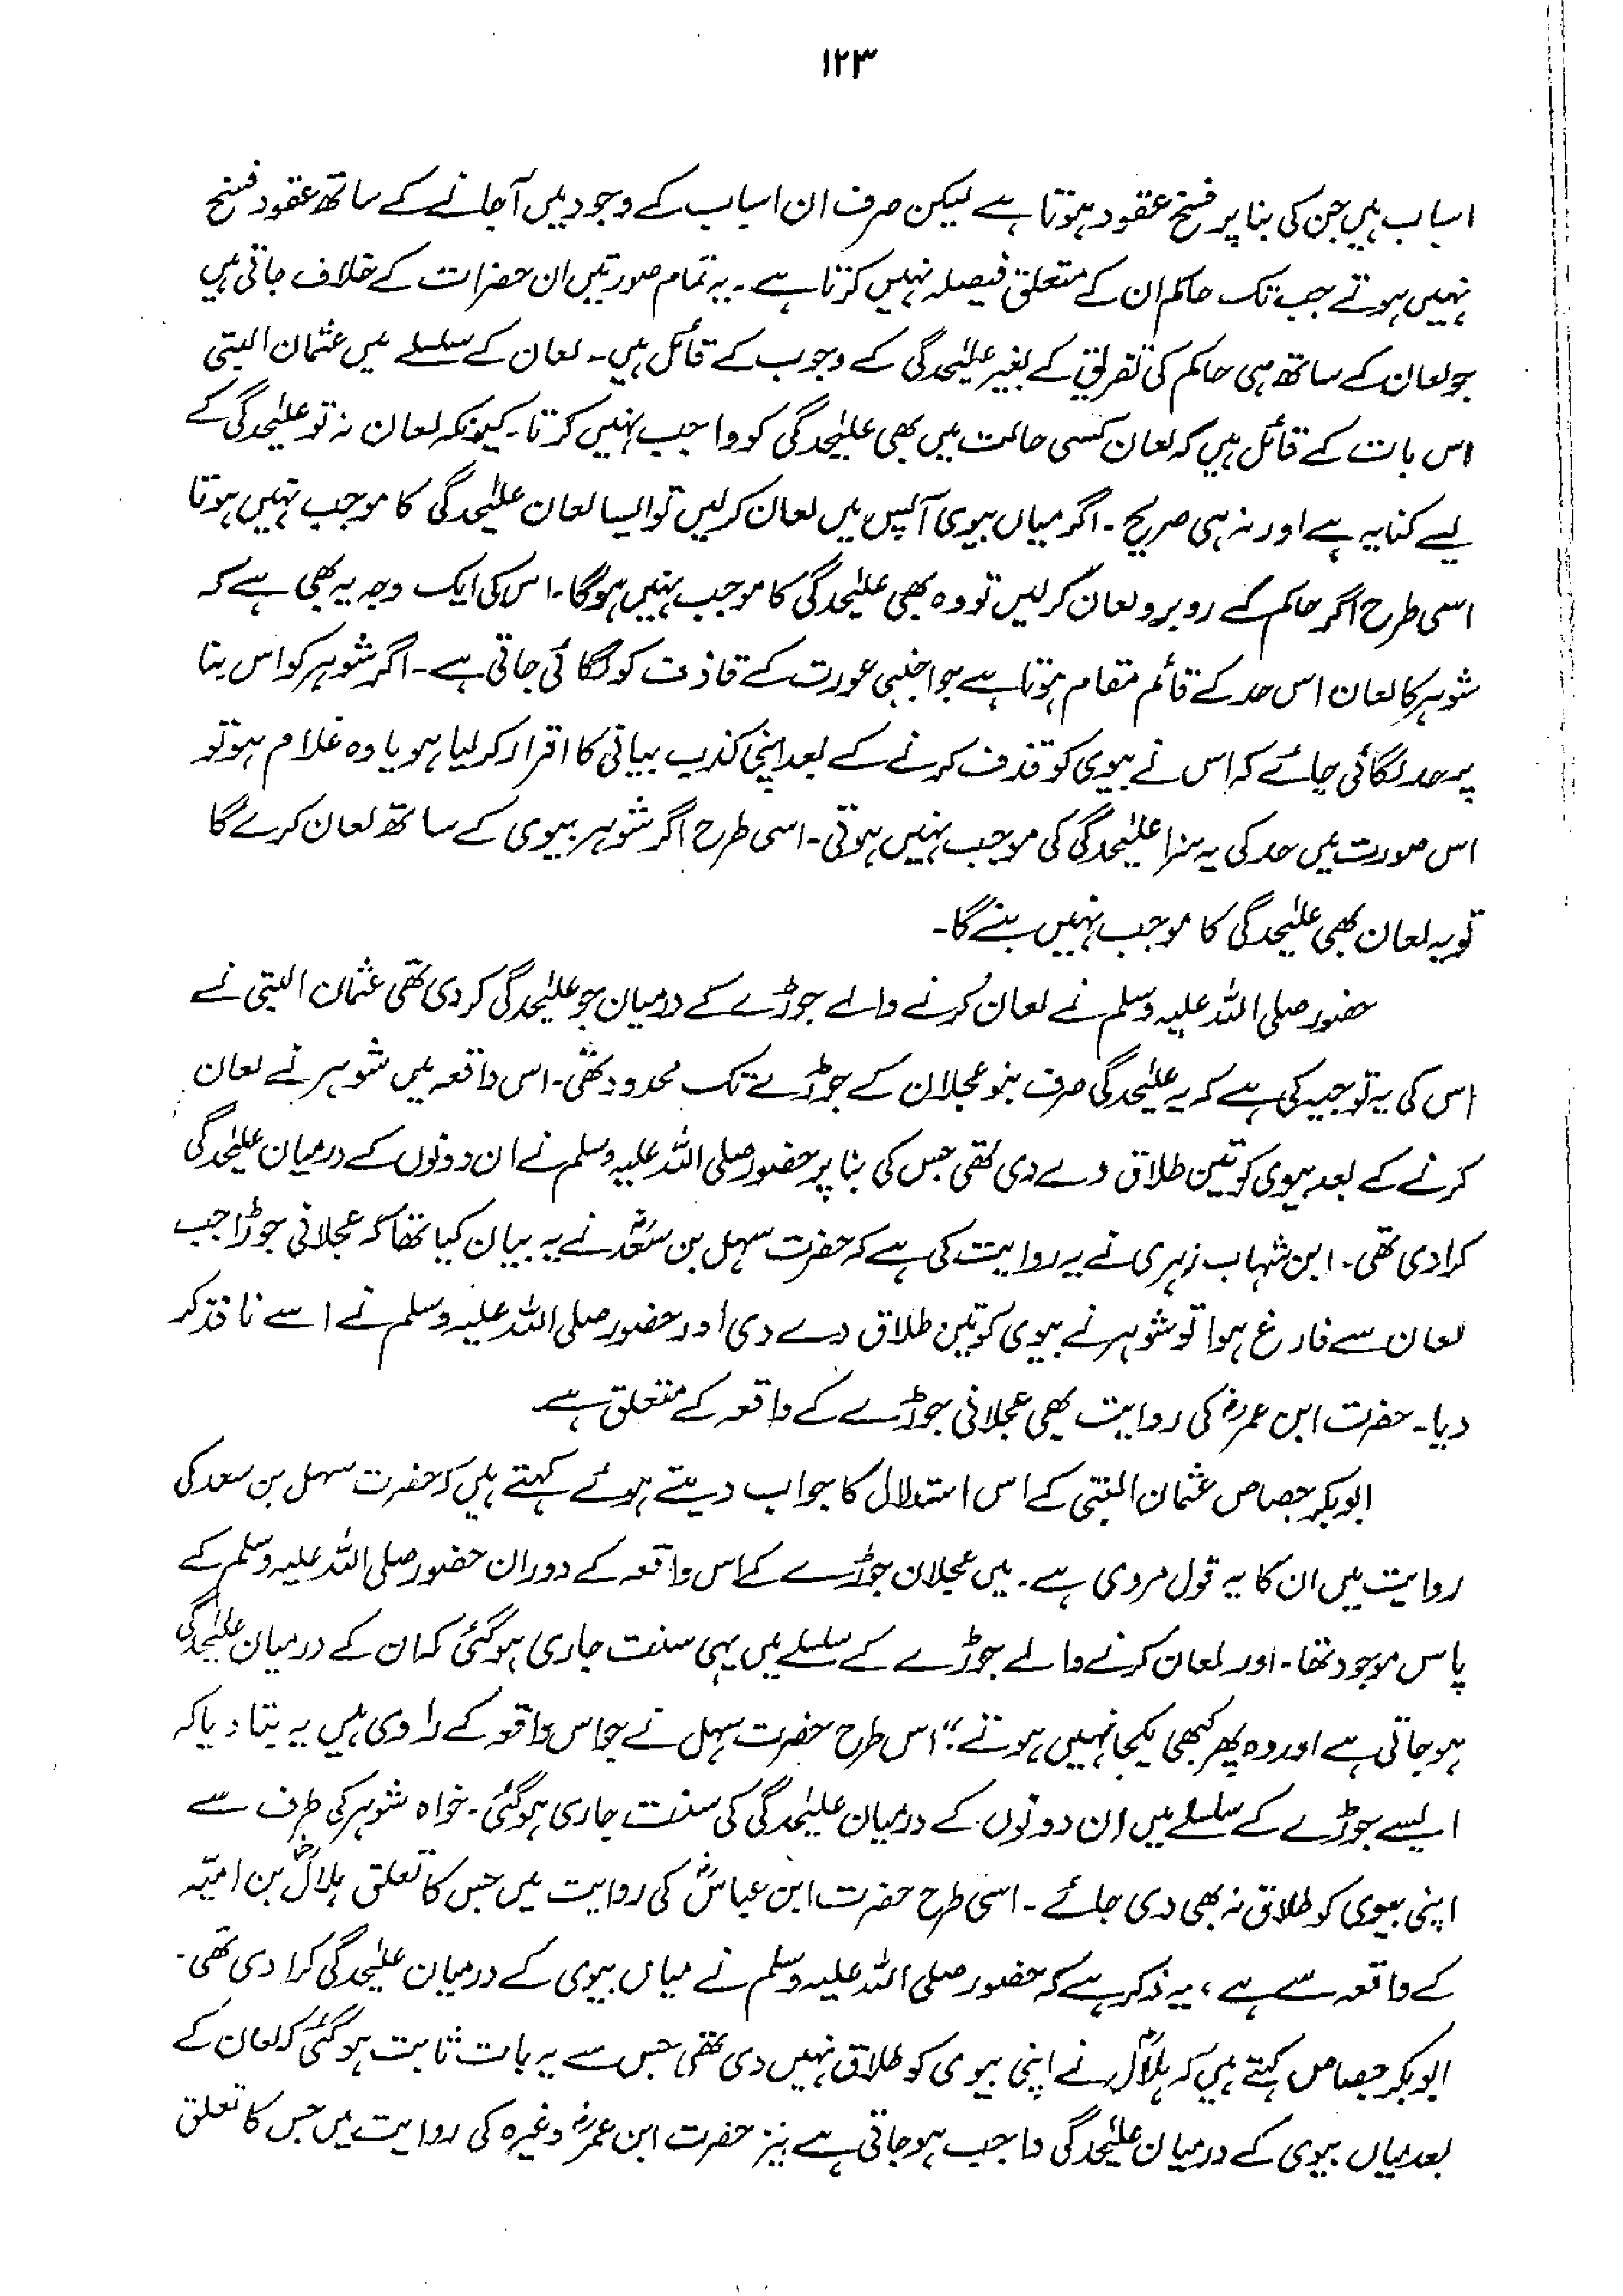 ۱۲۳
اسباب ہیں جن کی بنا پر فسخ عقود ہوتا ہے لیکن صرف ان اسباب کے وجود میں آجانے کے ساتھ عقود فسخ
نہیں ہوتے جب تک حاکم ان کے متعلق فیصلہ نہیں کرتا ہے۔ یہ تمام صورتیں ان حضرات کے خلاف جاتی ہیں
جو لعان کے ساتھ ہی حاکم کی تفریق کے بغیر علیٰحدگی کے وجوب کے قائل ہیں۔ لعان کے سلسلے میں عثمان البتی
اس بات کے قائل ہیں کہ لعان کسی حالت میں بھی علیٰحدگی کو واجب نہیں کرتا۔ کیونکہ لعان نہ تو علیٰحدگی کے
لیے کنایہ ہے اور نہ ہی صریح۔ اگر میاں بیوی آپس میں لعان کرلیں تو ایسا لعان علیٰحدگی کا موجب نہیں ہوتا
اسی طرح اگر حاکم کے روبرو لعان کرلیں تو وہ بھی علیٰحدگی کا موجب نہیں ہوگا۔ اس کی ایک وجہ یہ بھی ہے کہ
شوہر کا لعان اس حد کے قائم مقام ہوتا ہے جو اجنبی عورت کے قاذف کو لگائی جاتی ہے۔ اگر شوہر کو اس بنا
پر حد لگائی جائے کہ اس نے بیوی کو قذف کرنے کے بعد اپنی کذب بیانی کا اقرار کرلیا ہو یا وہ غلام ہو تو
اس صورت میں حد کی یہ سزا علیٰحدگی کی موجب نہیں ہوتی۔ اسی طرح اگر شوہر بیوی کے ساتھ لعان کرے گا
تو یہ لعان بھی علیٰحدگی کا موجب نہیں بنے گا۔
حضور صلی اللہ علیہ وسلم نے لعان کرنے والے جوڑے کے درمیان جو علیٰحدگی کر دی تھی عثمان البتی نے
اس کی یہ توجیہ کی ہے کہ یہ علیٰحدگی صرف بنو عجلان کے جوڑے تک محدود تھی۔ اس واقعہ میں شوہر نے لعان
کرنے کے بعد بیوی کو تین طلاق دے دی تھی جس کی بنا پر حضور صلی اللہ علیہ وسلم نے ان دونوں کے درمیان علیٰحدگی
کرادی تھی۔ ابن شہاب زہری نے یہ روایت کی ہے کہ حضرت سہل بن سعدؓ نے یہ بیان کیا تھا کہ عجلانی جوڑا جب
لعان سے فارغ ہوا تو شوہر نے بیوی کو تین طلاق دے دی اور حضور صلی اللہ علیہ وسلم نے اسے نافذ کر
دیا۔ حضرت ابن عمرؓ کی روایت بھی عجلانی جوڑے کے واقعہ کے متعلق ہے
ابوبکر جصاص عثمان البتی کے اس استدلال کا جواب دیتے ہوئے کہتے ہیں کہ حضرت سہل بن سعد کی
روایت میں ان کا یہ قول مروی ہے۔ میں عجلان جوڑے کے اس واقعہ کے دوران حضور صلی اللہ علیہ وسلم کے
پاس موجود تھا۔ اور لعان کرنے والے جوڑے کے سلسلے میں یہی سنت جاری ہوگئی کہ ان کے درمیان علیٰحدگی
ہوجاتی ہے اور وہ پھر کبھی یکجا نہیں ہوتے؛“ اس طرح حضرت سہل نے جو اس واقعہ کے راوی ہیں یہ بتا دیا کہ
ایسے جوڑے کے سلسلے میں ان دونوں کے درمیان علیٰحدگی کی سنت جاری ہوگئی۔ خواہ شوہر کی طرف سے
اپنی بیوی کو طلاق نہ بھی دی جائے۔ اسی طرح حضرت ابن عباسؓ کی روایت میں جس کا تعلق ہلالؓ بن امیّہ
کے واقعہ سے ہے، یہ ذکر ہے کہ حضور صلی اللہ علیہ وسلم نے میاں بیوی کے درمیان علیٰحدگی کرا دی تھی۔
ابوبکر جصاص کہتے ہیں کہ ہلالؓ نے اپنی بیوی کو طلاق نہیں دی تھی جس سے یہ بات ثابت ہوگئی کہ لعان کے
بعد میاں بیوی کے درمیان علیٰحدگی واجب ہوجاتی ہے نیز حضرت ابن عمرؓ وغیرہ کی روایت میں جس کا تعلق